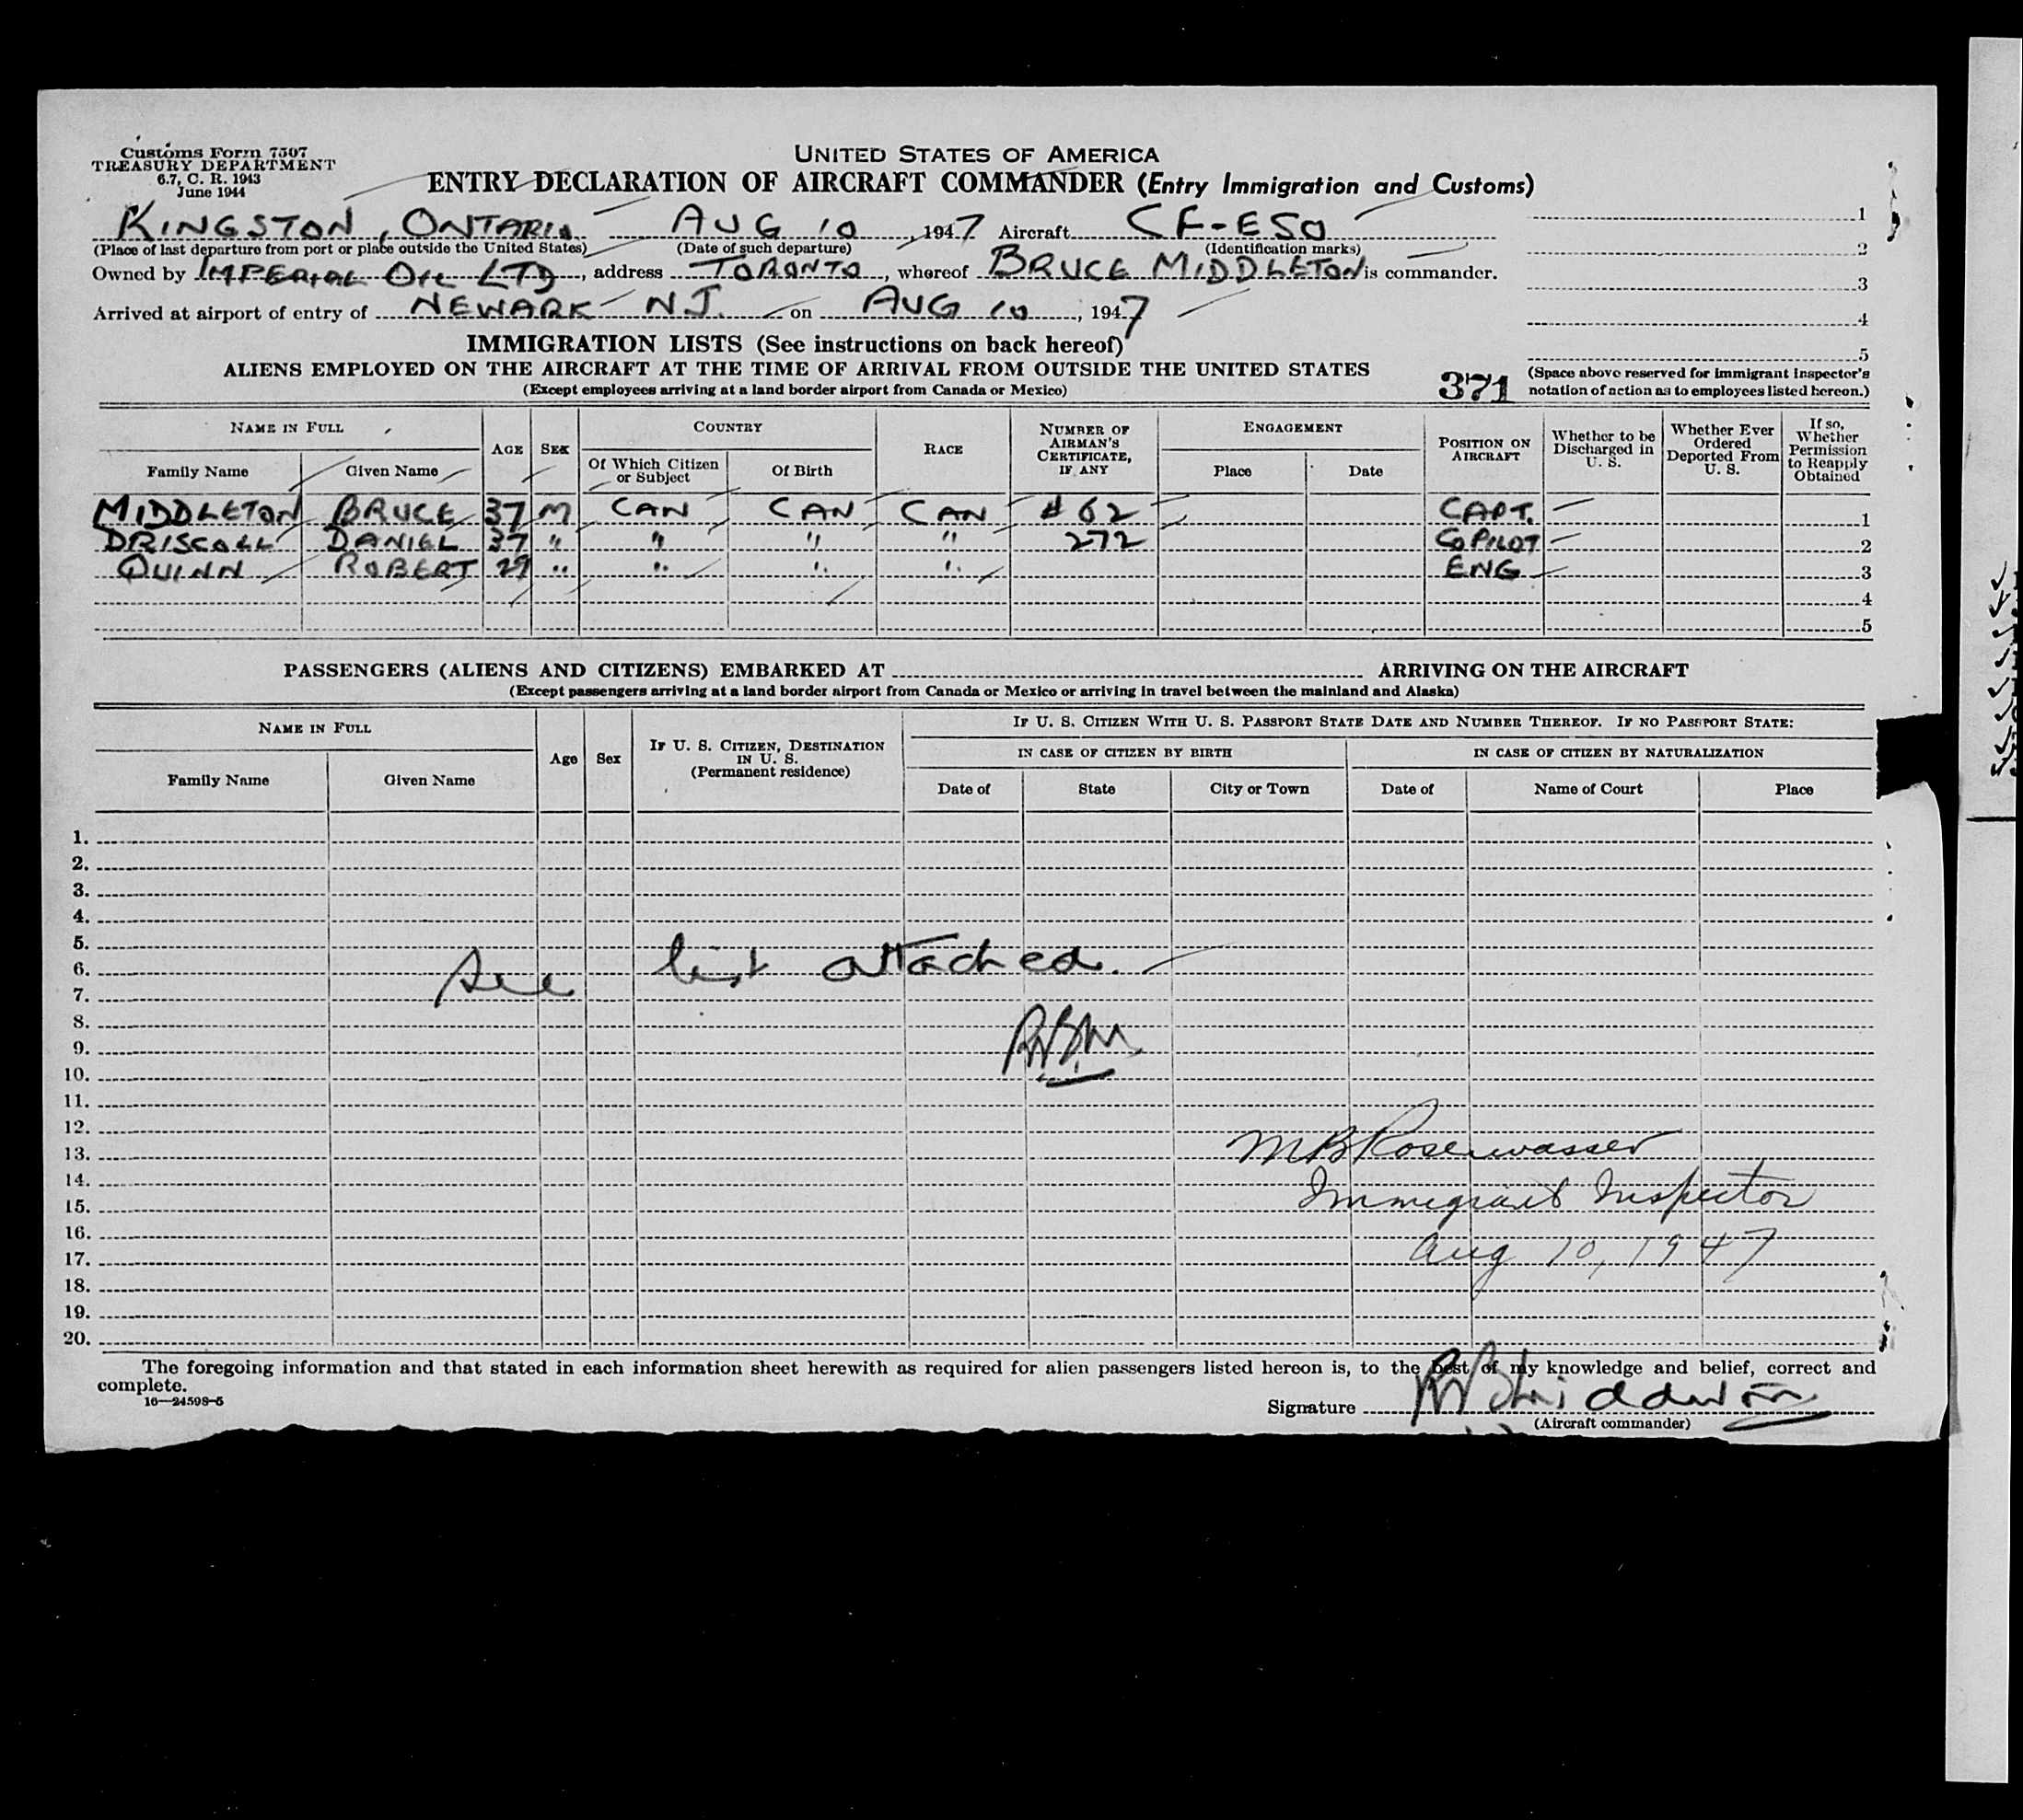 Customs Form 7507
TREASURY DEPARTMENT
6.7, C. R. 1943
June 1944
UNITED STATES OF AMERICA
ENTRY DECLARATION OF AIRCRAFT COMMANDER (Entry Immigration and Customs)
KINGSTON, ONTARIO AUG 10, 1947 Aircraft CF-ESO
(Place of last departure from port or place outside the United States) (Date of such departure) (Identification marks)
Owned by IMPERIAL OIL LTD, address TORONTO, whereof BRUCE MIDDLETON is commander.
Arrived at airport of entry of NEWARK N.J. on AUG 10, 1947
1
2
3
4
5
(Space above reserved for immigrant inspector's
notation of action as to employees listed hereon.)
IMMIGRATION LISTS (See instructions on back hereof)
ALIENS EMPLOYED ON THE AIRCRAFT AT THE TIME OF ARRIVAL FROM OUTSIDE THE UNITED STATES
(Except employees arriving at a land border airport from Canada or Mexico)
371
NAME IN FULL AGE SEX COUNTRY RACE NUMBER OF AIRMAN'S CERTIFICATE, IF ANY ENGAGEMENT POSITION ON AIRCRAFT Whether to be Discharged in U. S. Whether Ever Ordered Deported From U. S. If so, Whether Permission to Reapply Obtained
Family Name Given Name Of Which Citizen or Subject Of Birth Place Date
MIDDLETON BRUCE 37 M CAN CAN CAN #62 CAPT. — 1
DRISCOLL DANIEL 37 " " " " 272 CO PILOT — 2
QUINN ROBERT 29 " " " " ENG — 3
4
5
PASSENGERS (ALIENS AND CITIZENS) EMBARKED AT ARRIVING ON THE AIRCRAFT
(Except passengers arriving at a land border airport from Canada or Mexico or arriving in travel between the mainland and Alaska)
NAME IN FULL Age Sex IF U. S. CITIZEN, DESTINATION IN U. S. (Permanent residence) IF U. S. CITIZEN WITH U. S. PASSPORT STATE DATE AND NUMBER THEREOF. IF NO PASSPORT STATE:
IN CASE OF CITIZEN BY BIRTH IN CASE OF CITIZEN BY NATURALIZATION
Family Name Given Name Date of State City or Town Date of Name of Court Place
1.
2.
3.
4.
5.
6.
See list attached.
7.
8.
9.
RBM
10.
11.
12.
13.
M B Rosenwasser
14.
15.
Immigrant Inspector
16.
17.
Aug 10, 1947
18.
19.
20.
The foregoing information and that stated in each information sheet herewith as required for alien passengers listed hereon is, to the best of my knowledge and belief, correct and
complete.
16—24598-5
Signature RB Middleton
(Aircraft commander)